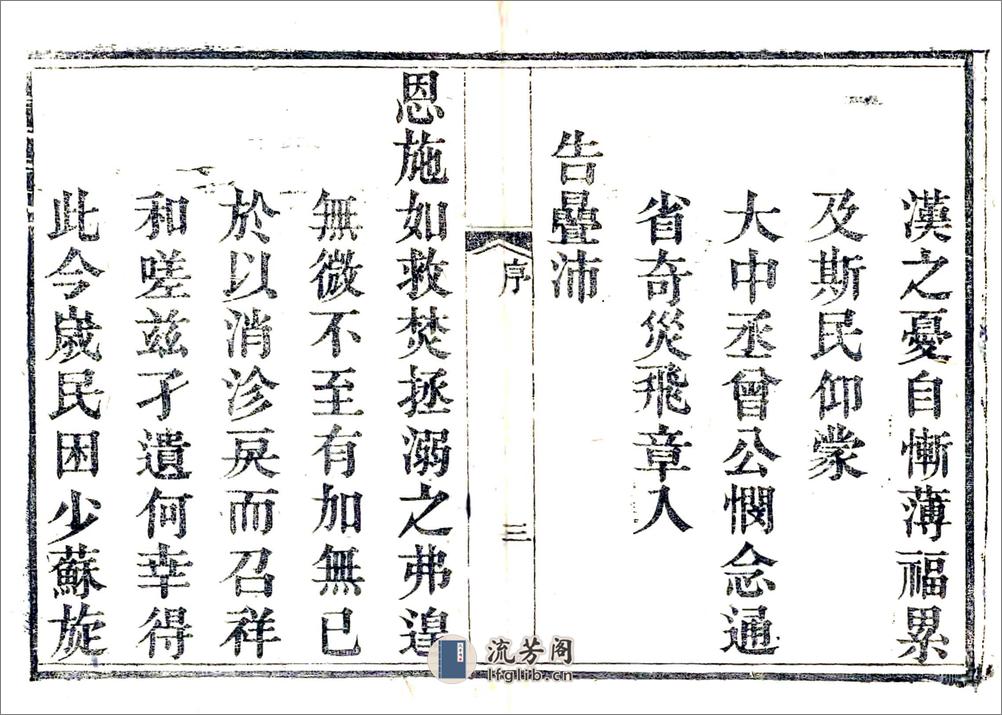 漢之憂自慚薄福累
及斯民仰蒙
大中丞曾公憫念通
省奇災飛章入
告疊沛
序
三
恩施如救焚拯溺之弗遑
無微不至有加無已
於以消沴戾而召祥
和嗟茲孑遺何幸得
此今歲民困少蘇旋
流芳阁
lfglib.cn